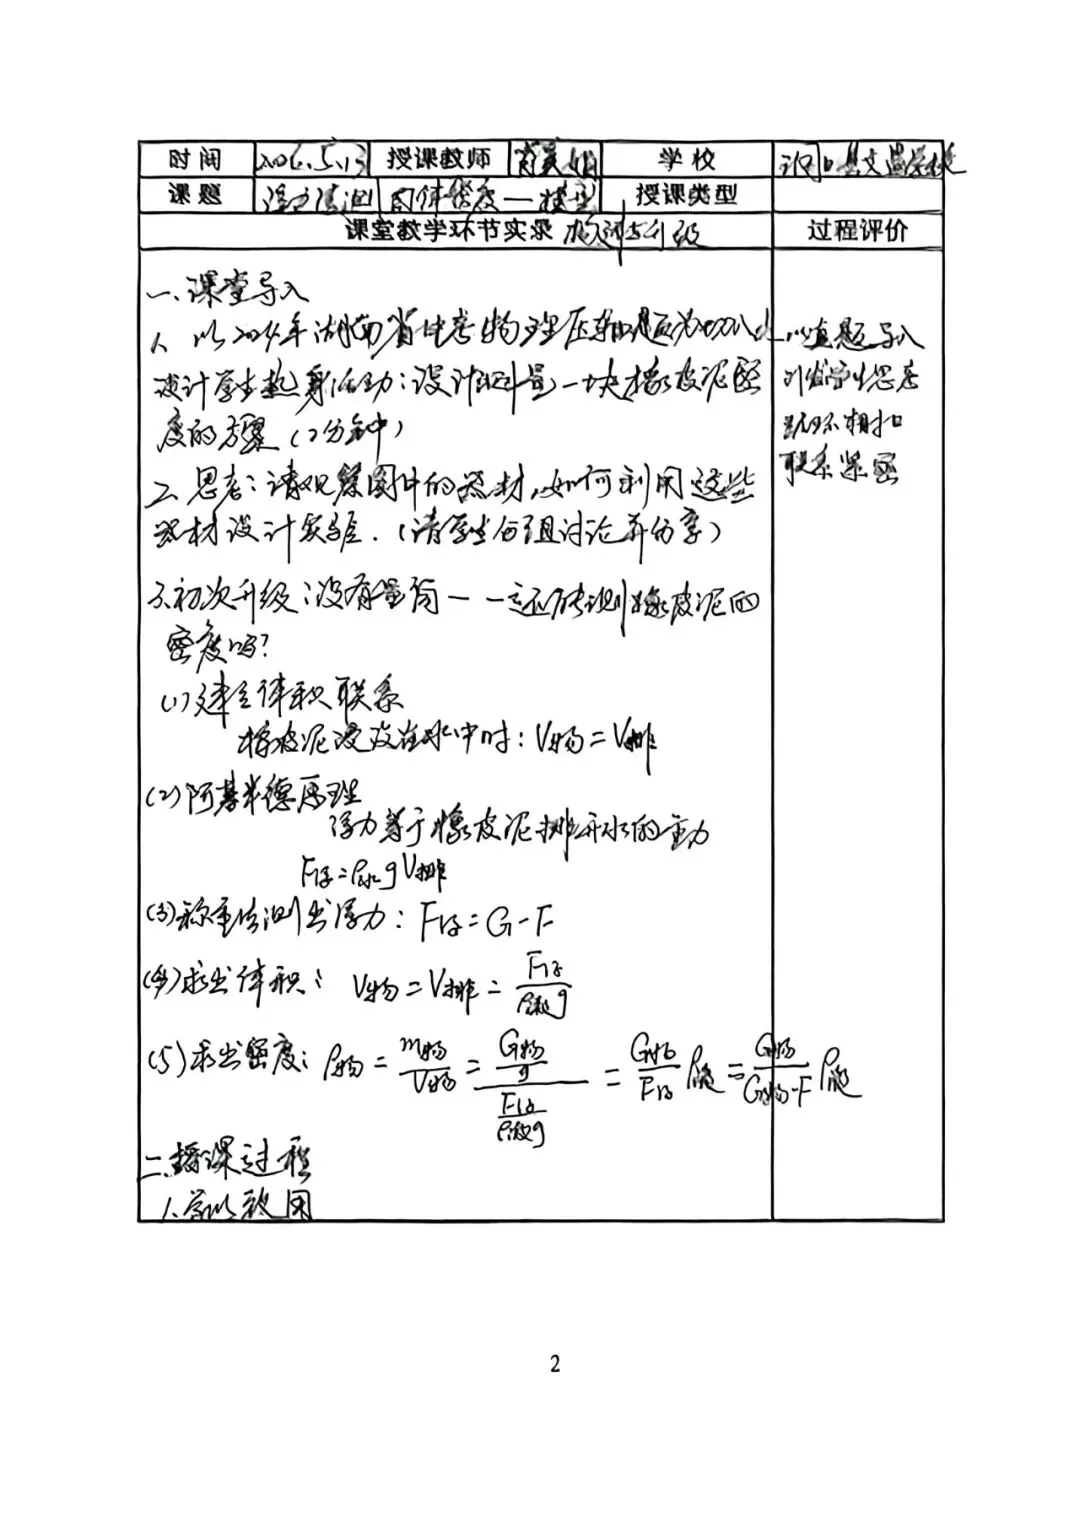 时间 2026.5.13 授课教师 学校
课题 浮力法测固体密度—模型 授课类型
课堂教学环节实录 构建与升级 过程评价
一、课堂导入
1、以2024年湖南省中考物理压轴题为切入
设计学生热身活动：设计测量一块橡皮泥密
度的方案（2分钟）
2、思考：请观察图中的器材，如何利用这些
器材设计实验.（请学生分组讨论并分享）
3、初次升级：没有量筒——还能测橡皮泥的
密度吗？
(1)建立体积联系
橡皮泥浸没在水中时：V物=V排
(2)阿基米德原理
浮力等于橡皮泥排开水的重力
F浮=ρ水gV排
(3)称重法测出浮力：F浮=G-F
(4)求出体积：V物=V排=F浮/ρ液g
(5)求出密度：ρ物=m物/V物=(G物/g)/(F浮/ρ液g)=G物/F浮 ρ液=G物/(G物-F) ρ液
二、授课过程
1、学以致用
以真题导入
引发学生思考
环环相扣
联系紧密
2